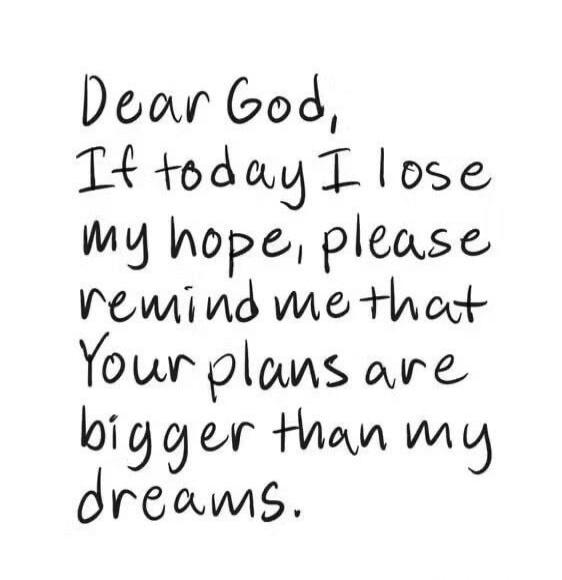 Dear God,
If today I lose
my hope, please
remind me that
Your plans are
bigger than my
dreams.